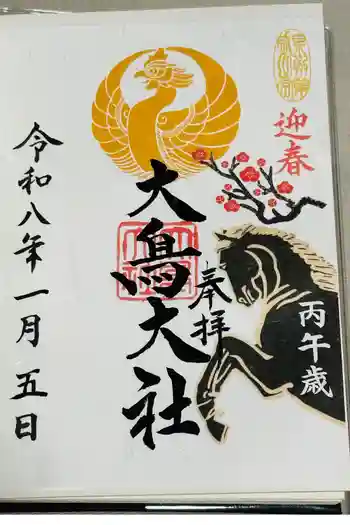 迎春
奉拝
丙午歳
大鳥大社
令和八年一月五日